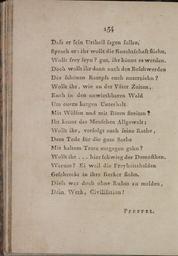 154
Daß er sein Urtheil sagen sollte,
Sprach er: ihr wollt die Knechtschaft fliehn,
Wollt frey seyn? gut, ihr könnt es werden.
Doch wollt ihr dann auch den Beschwerden
Des schönen Kampfs euch unterziehn?
Wollt ihr, wie an der Väter Zeiten,
Euch in den unwirthbaren Wald
Um euren kargen Unterhalt
Mit Wölfen und mit Bären streiten?
Ihr kennt des Menschen Allgewalt;
Wollt ihr, verfolgt nach seine Rotte,
Dem Tode für die gute Sache
Mit kaltem Trotz entgegen gehn?
Wollt ihr . . . hier schwieg der Demosthen.
Warum? Ei weil die Freyheitshelden
Geschreckt in ihre Kerker flohn.
Dieß war doch ohne Ruhm zu melden,
Dein Werk, Civilisation!
Pfeffel.